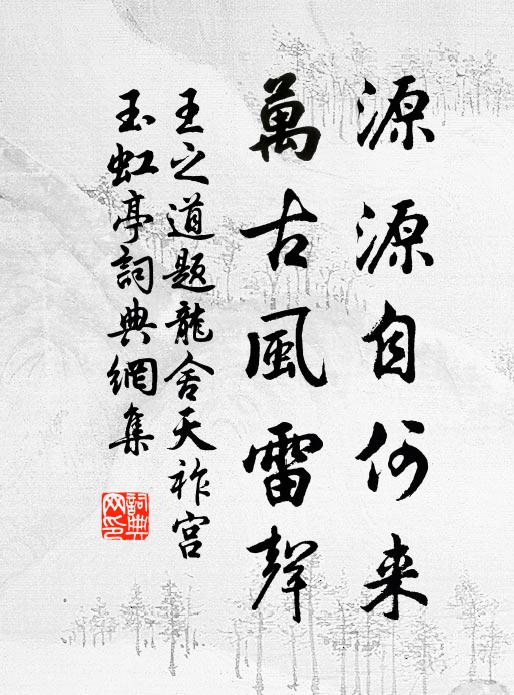 源源自何来
萬古風雷聲
王之道题龍舍天祚宫
玉虹亭詞典網集
詞典
网印